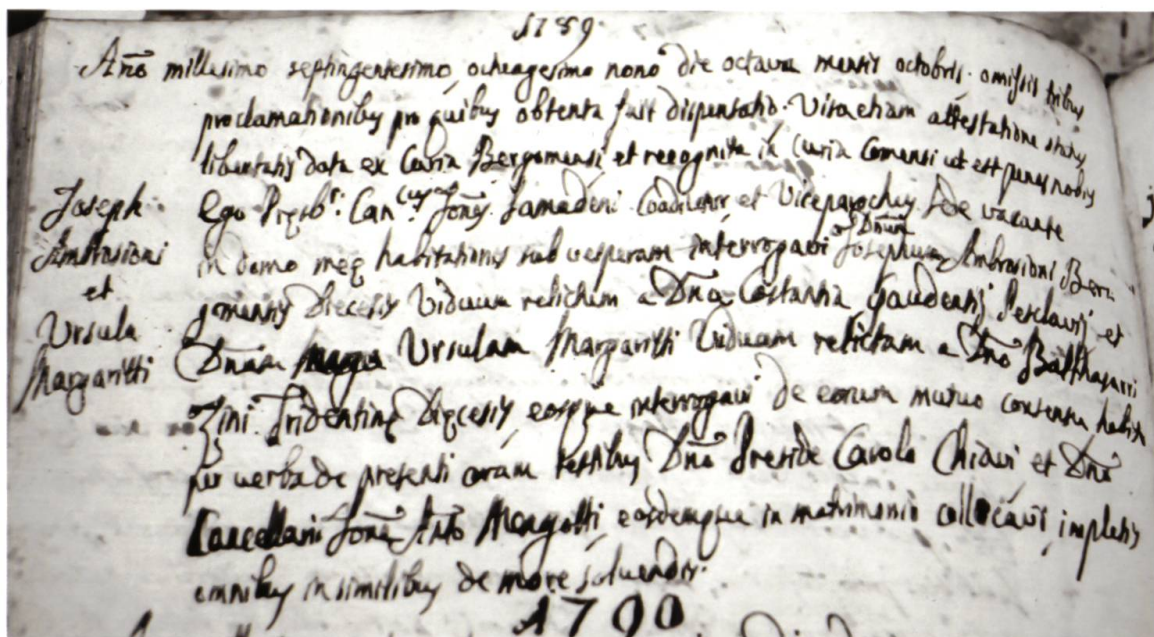 1789
Año millesimo septingentesimo octuagesimo nono die octava mensis octobris. omissis tribus
proclamationibus pro quibus obtenta fuit dispensatio. Visa etiam attestatione status
libertatis data ex Curia Bergomensi et recognita in Curia Comensi ut est penes nobis
Joseph
Ambrosioni
et
Ursula
Margaritti
Ego Presbr. Can.cus Joñes Samadeni Coadiutor et Viceparochus Sede vacante
in domo meę habitationis sub vesperam interrogavi Dnum Josephum Ambrosioni Ber
gomensis Diecesis Viduum relictum a Dña Costantia Gaudentij et
Dnam Ursulam Margaritti Viduam relictam a Dño Balthasarri
Zini Tridentinę Dięcesis, eosque interrogavi de eorum mutuo consensu habito
per verba de presenti coram testibus Dño Preside Carolo Chiavi et Dño
Cancellario Joñe Antõ Mengotti, eosdemque in matrimonio collocavi, impletis
omnibus in similibus de more solvendis.
1790